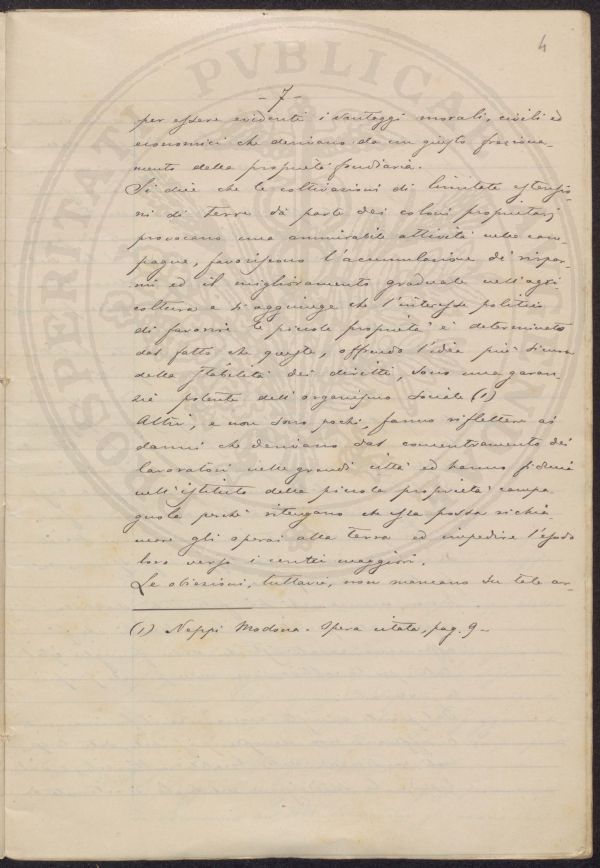 4
- 7 -
per essere evidenti i vantaggi morali, civili ed
economici che derivano da un giusto fraziona-
mento della proprietà fondiaria.
Si dice che le coltivazioni di limitate estensio-
ni di terre da parte dei coloni proprietarj
provocano una ammirabile attività nelle cam-
pagne, favoriscono l'accumulazione di rispar-
mi ed il miglioramento graduale nell'agri
coltura e si aggiunge che l'interesse politico
di favorire le piccole proprietà è determinato
dal fatto che queste, offrendo l'idea più sicura
della stabilità dei diritti, sono una garan-
zia potente dell'organismo sociale (1)
Altri, e non sono pochi, fanno riflettere ai
danni che derivano dal concentramento dei
lavoratori nelle grandi città ed hanno fiducia
nell'istituto della piccola proprietà campa
gnola perchè ritengano che essa possa richia-
mare gli operai alla terra ed impedire l'esodo
loro verso i centri maggiori.
Le obiezioni, tuttavia, non mancano su tale ar-
(1) Neppi Modona - Opera citata, pag. 9 -
PROSPERITATI PVBLICAE